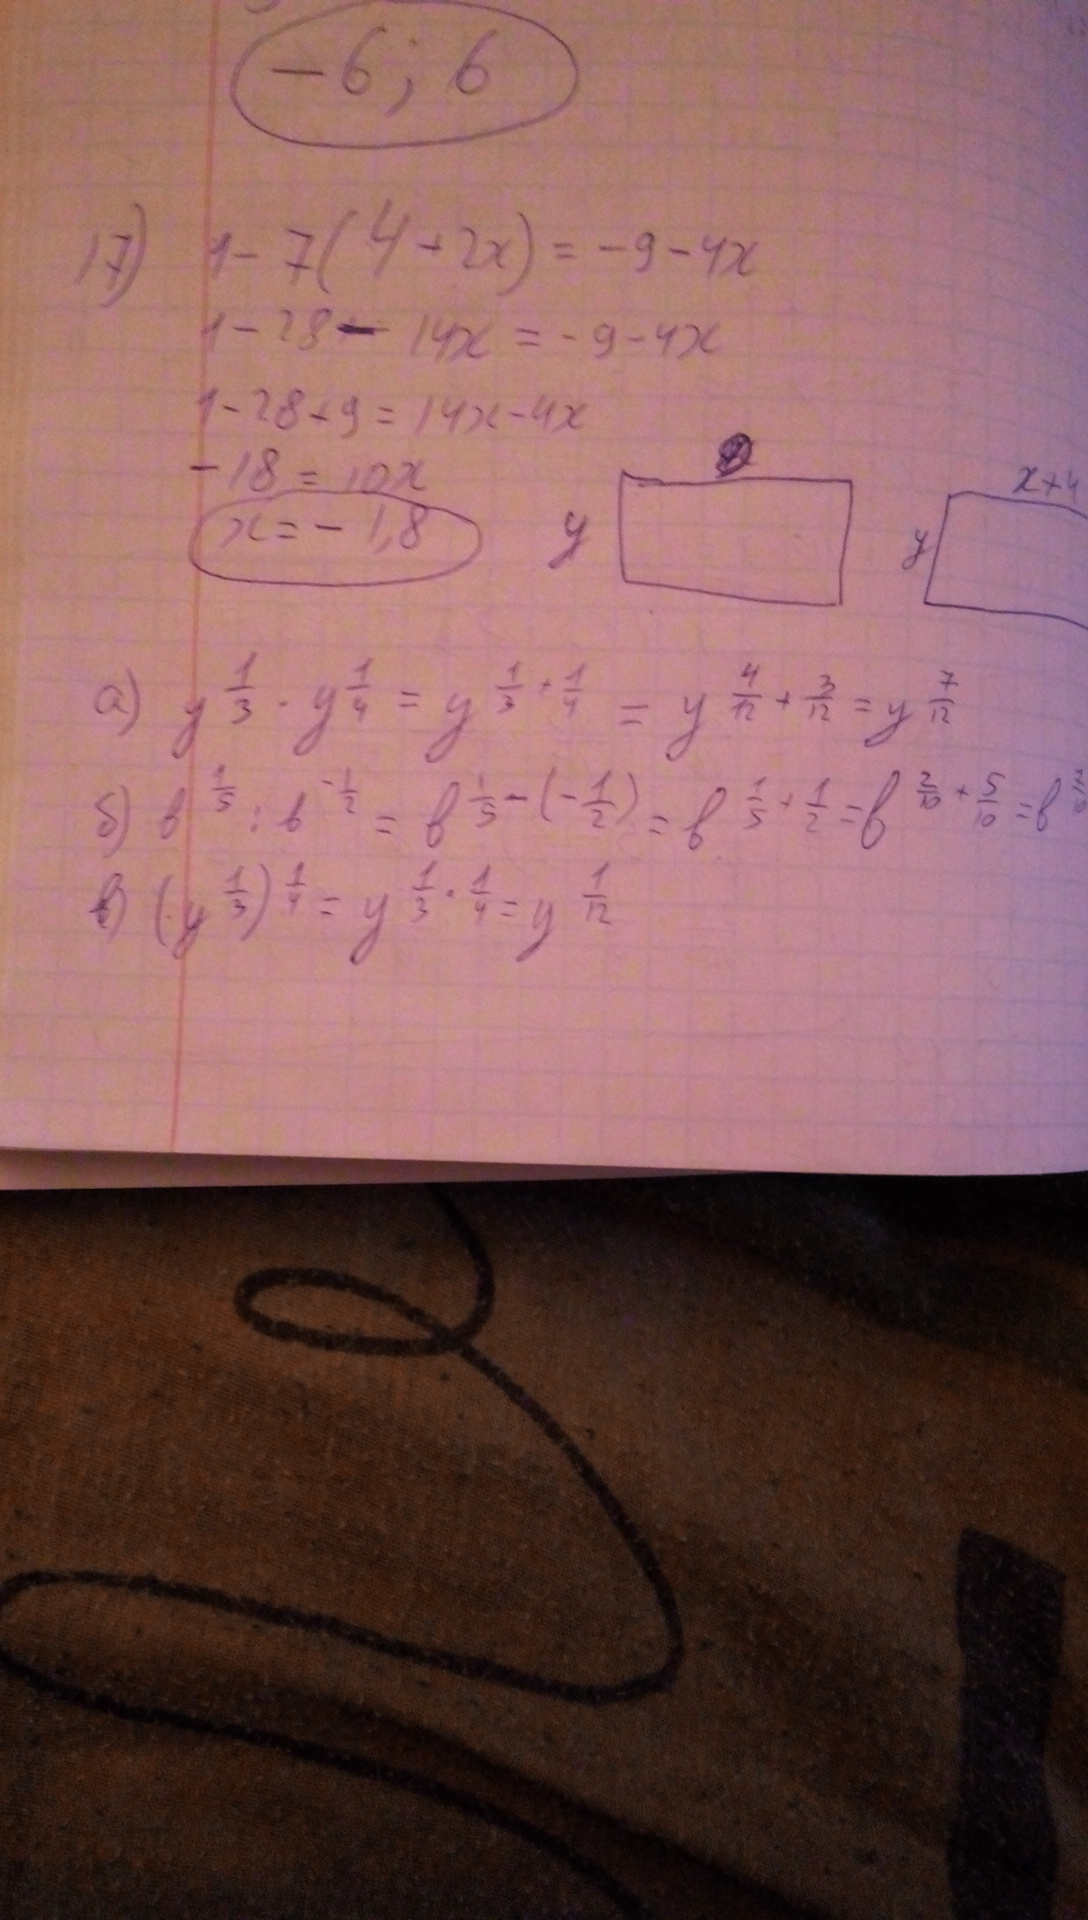 -6; 6
17) 1-7(4+2x) = -9-4x
1-28-14x = -9-4x
1-28+9 = 14x-4x
-18 = 10x
x = -1,8
y
y x+4
а) y^(1/3) · y^(1/4) = y^(1/3+1/4) = y^(4/12+3/12) = y^(7/12)
б) b^(1/5) : b^(-1/2) = b^(1/5-(-1/2)) = b^(1/5+1/2) = b^(2/10+5/10) = b^(7/10)
в) (y^(1/3))^(1/4) = y^(1/3·1/4) = y^(1/12)